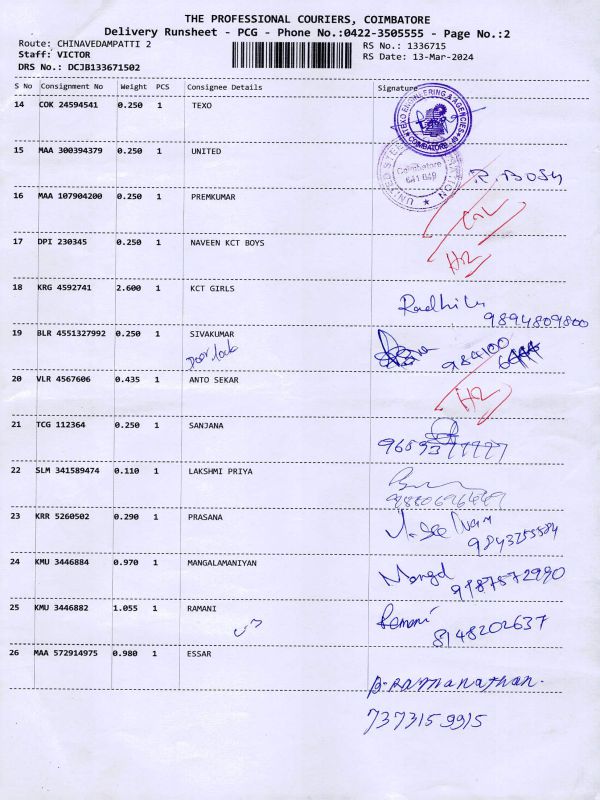 THE PROFESSIONAL COURIERS, COIMBATORE
Delivery Runsheet - PCG - Phone No.:0422-3505555 - Page No.:2
Route: CHINAVEDAMPATTI 2
RS No.: 1336715
Staff: VICTOR
RS Date: 13-Mar-2024
DRS No.: DCJB133671502
S No Consignment No Weight PCS Consignee Details Signature
14 COK 24594541 0.250 1 TEXO
TEXO ENGINEERING & AGENCIES
COIMBATORE
15 MAA 300394379 0.250 1 UNITED
UNITED
Coimbatore
641 049
R. BOSU
16 MAA 107904200 0.250 1 PREMKUMAR
17 DPI 230345 0.250 1 NAVEEN KCT BOYS
18 KRG 4592741 2.600 1 KCT GIRLS
9894809800
19 BLR 4551327992 0.250 1 SIVAKUMAR
Door lock
984100
20 VLR 4567606 0.435 1 ANTO SEKAR
21 TCG 112364 0.250 1 SANJANA
22 SLM 341589474 0.110 1 LAKSHMI PRIYA
23 KRR 5260502 0.290 1 PRASANA
24 KMU 3446884 0.970 1 MANGALAMANIYAN
25 KMU 3446882 1.055 1 RAMANI
Ramani
8148202637
26 MAA 572914975 0.980 1 ESSAR
B. Ramanathan.
7373159915